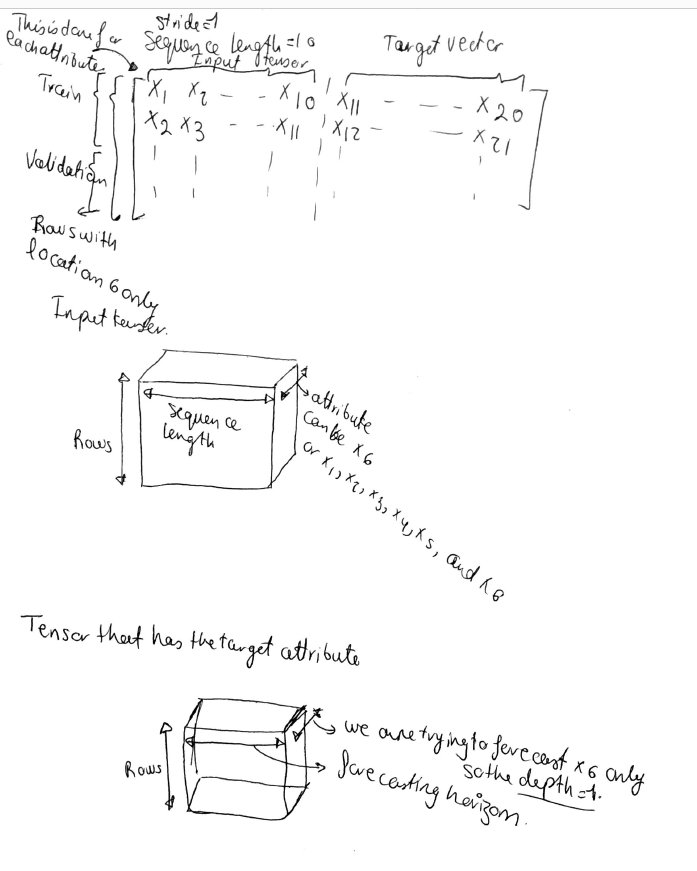 This is done for
each attribute
stride=1
Sequence length=10
Input tensor
Target vector
Train
X1 X2 - - X10 | X11 - - - X20
X2 X3 - - X11 | X12 - - X21
Validation
Rows with
location 6 only
Input tensor.
Rows
Sequence
length
attribute
can be X6
or X1, X2, X3, X4, X5, and X6
Tensor that has the target attribute
Rows
we are trying to forecast X6 only
so the depth=1.
forecasting horizon.